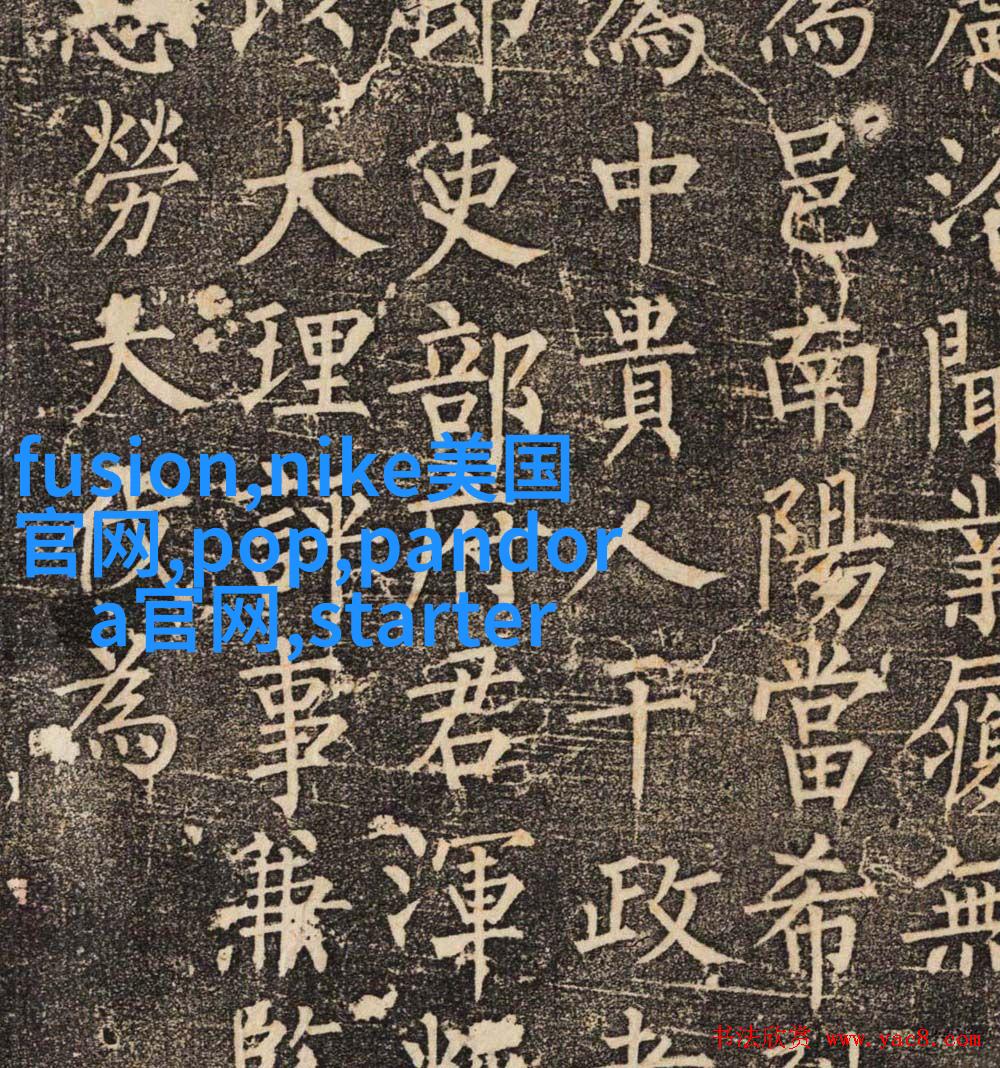 聞業履無
為邑南陽當希
為中貴人干政
郎吏部州君渾
大理評事兼監
勞大為
fusion,nike美国
官网,pop,pandor
a官网,starter
书法欣赏 www.yac8.com